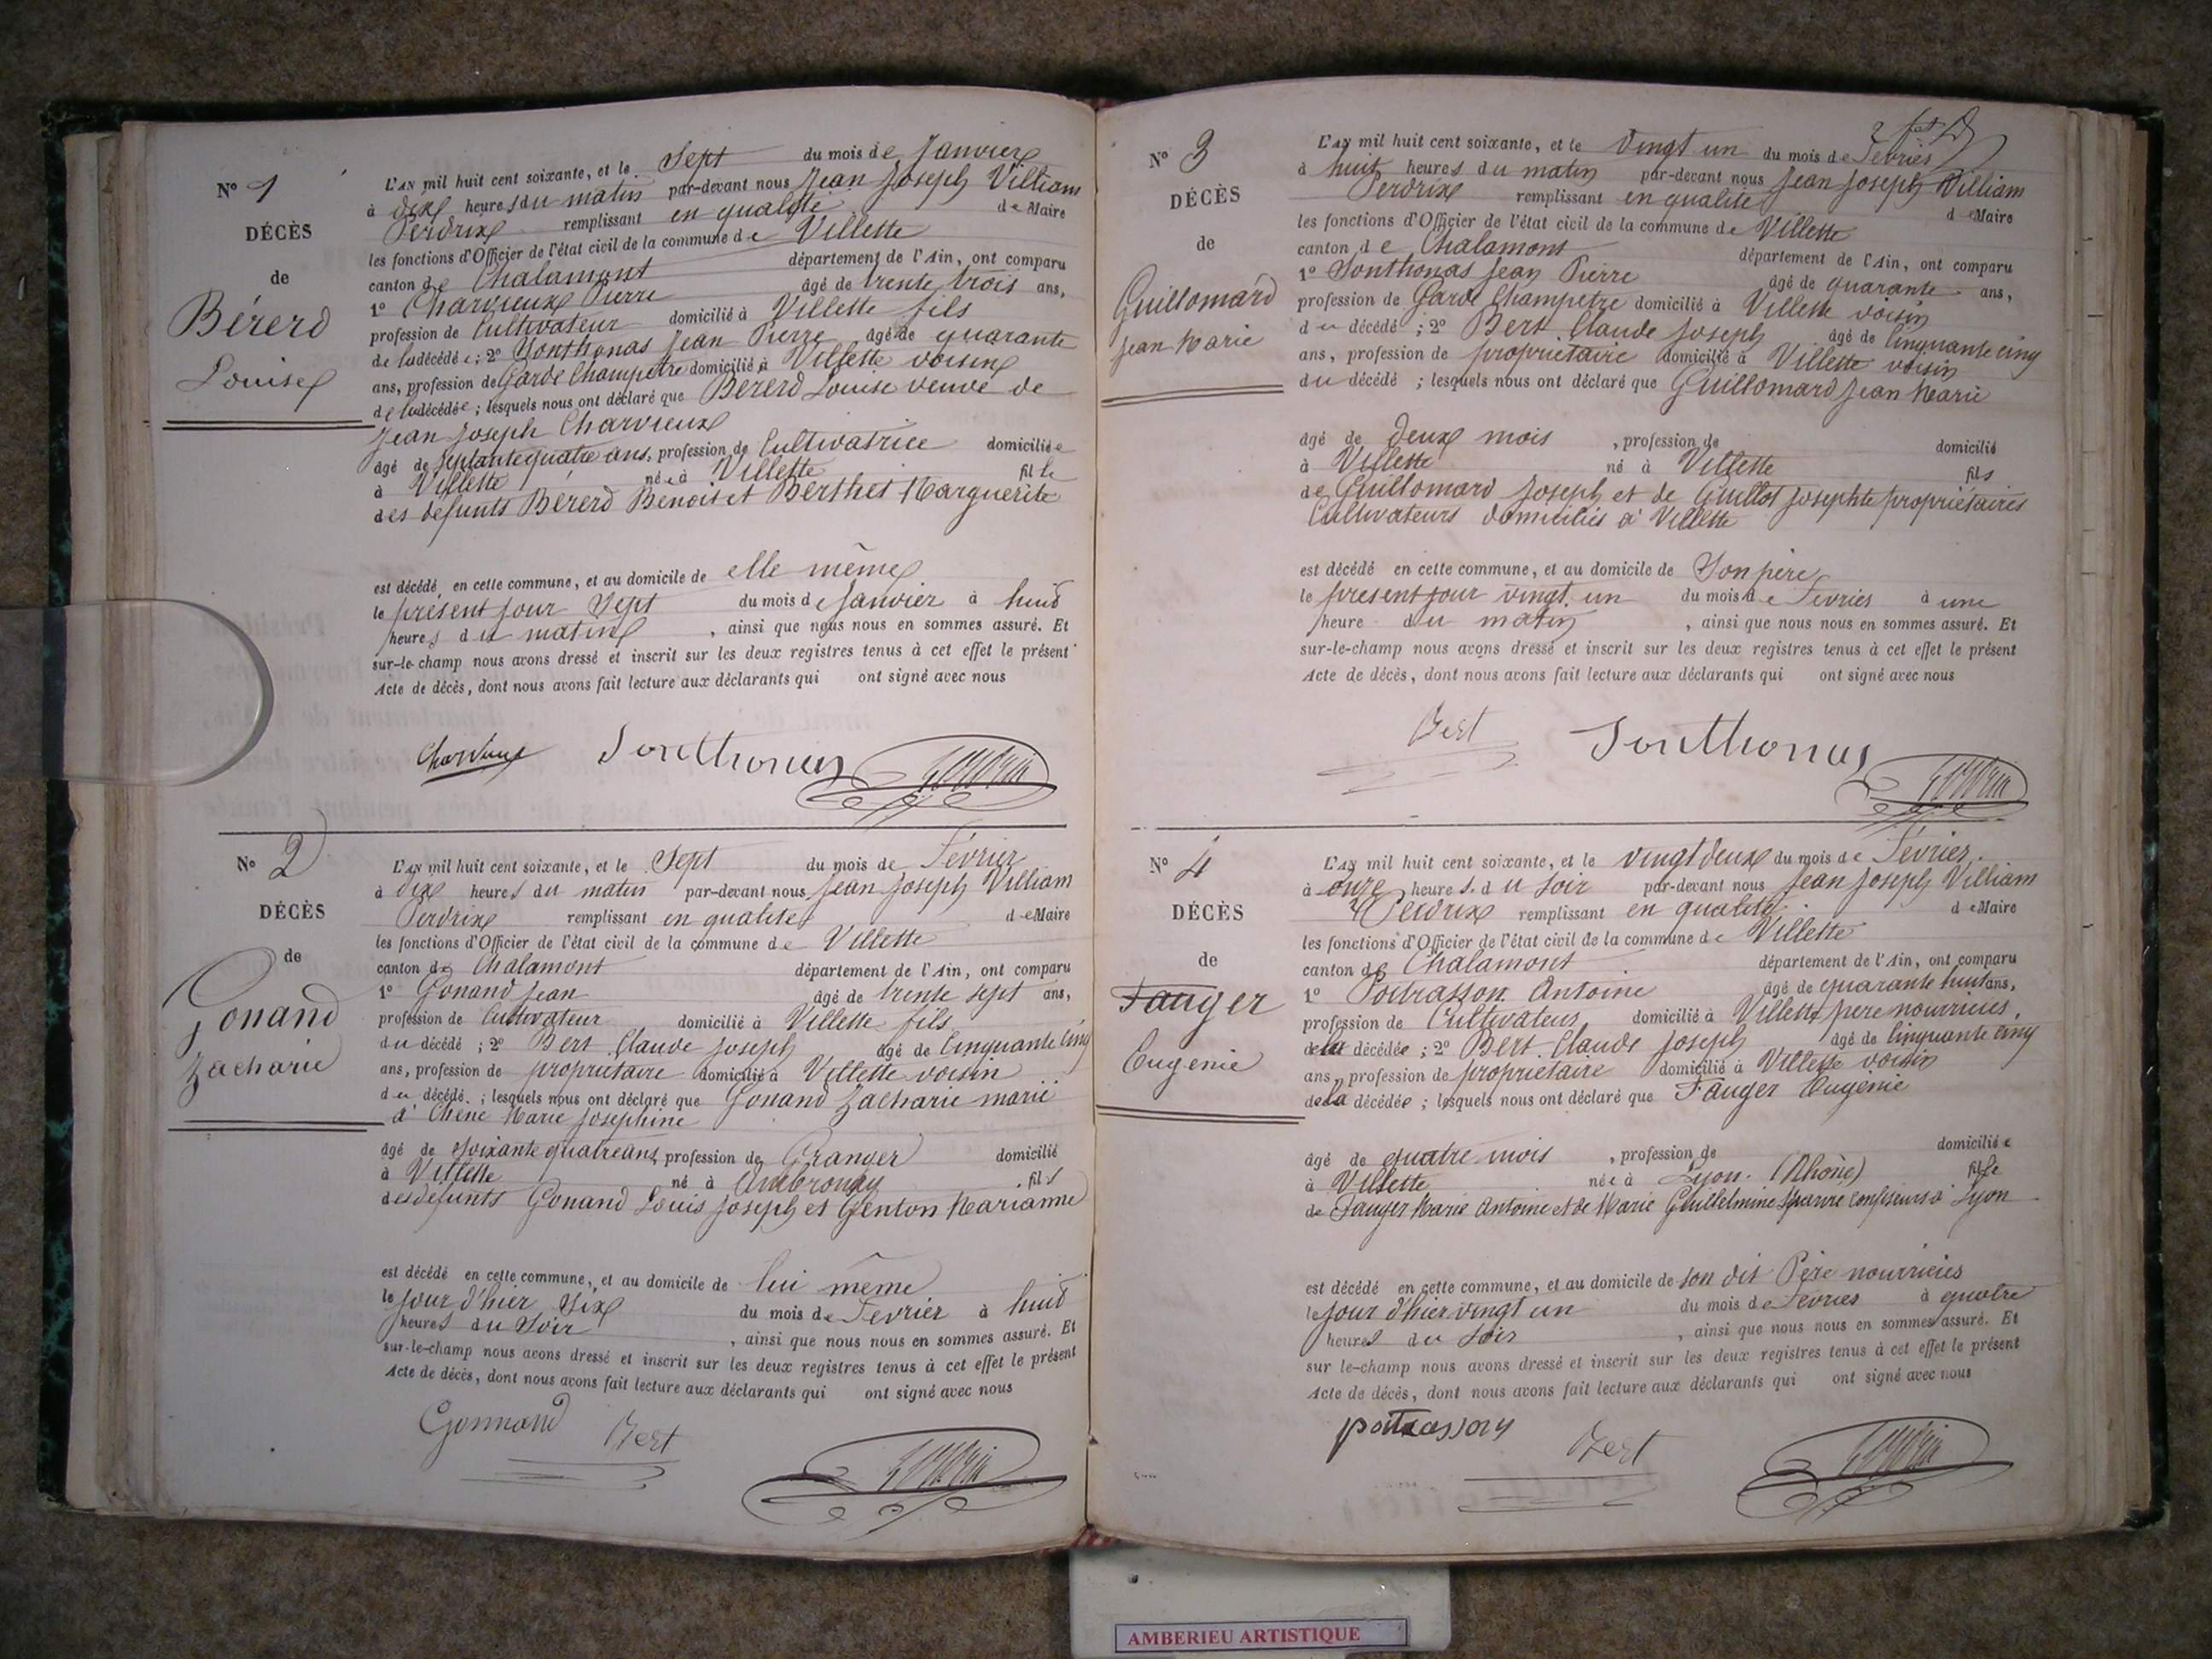 N° 1
DÉCÈS
de
Bérerd
Louise
L'AN mil huit cent soixante, et le Sept du mois de Janvier
à dix heures du matin par-devant nous Jean Joseph Villiam
Perdrix remplissant en qualité de Maire
les fonctions d'Officier de l'état civil de la commune de Villette
canton de Chalamont département de l'Ain, ont comparu
1° Charvieux Pierre âgé de trente trois ans,
profession de Cultivateur domicilié à Villette fils
de la décédée ; 2° Sonthonas Jean Pierre âgé de quarante
ans, profession de Garde Champetre domicilié à Villette voisin
de la décédée ; lesquels nous ont déclaré que Bérerd Louise veuve de
Jean Joseph Charvieux
âgé de Septante quatre ans, profession de Cultivatrice domiciliée
à Villette née à Villette fille
des defunts Bérerd Benoit et Berthet Marguerite
est décédé en cette commune, et au domicile de elle même
le présent jour Sept du mois de Janvier à huit
heures du matin , ainsi que nous nous en sommes assuré. Et
sur-le-champ nous avons dressé et inscrit sur les deux registres tenus à cet effet le présent
Acte de décès, dont nous avons fait lecture aux déclarants qui ont signé avec nous
Charvieux Sonthonas
N° 2
DÉCÈS
de
Gonand
Zacharie
L'AN mil huit cent soixante, et le Sept du mois de Février
à dix heures du matin par-devant nous Jean Joseph Villiam
Perdrix remplissant en qualité de Maire
les fonctions d'Officier de l'état civil de la commune de Villette
canton de Chalamont département de l'Ain, ont comparu
1° Gonand Jean âgé de trente sept ans,
profession de Cultivateur domicilié à Villette fils
du décédé ; 2° Bert Claude Joseph âgé de Cinquante cinq
ans, profession de propriétaire domicilié à Villette voisin
du décédé ; lesquels nous ont déclaré que Gonand Zacharie marié
à Chêne Marie Josephine
âgé de Soixante quatre ans, profession de Granger domicilié
à Villette né à Ambronay fils
des defunts Gonand Louis Joseph et Genton Marianne
est décédé en cette commune, et au domicile de lui même
le jour d'hier Six du mois de Fevrier à huit
heures du Soir , ainsi que nous nous en sommes assuré. Et
sur-le-champ nous avons dressé et inscrit sur les deux registres tenus à cet effet le présent
Acte de décès, dont nous avons fait lecture aux déclarants qui ont signé avec nous
Gonnand Bert
N° 3
DÉCÈS
de
Guillomard
Jean Marie
L'AN mil huit cent soixante, et le Vingt un du mois de Fevrier
à huit heures du matin par-devant nous Jean Joseph Villiam
Perdrix remplissant en qualité de Maire
les fonctions d'Officier de l'état civil de la commune de Villette
canton de Chalamont département de l'Ain, ont comparu
1° Sonthonas Jean Pierre âgé de quarante ans,
profession de Garde Champetre domicilié à Villette voisin
du décédé ; 2° Bert Claude Joseph âgé de Cinquante cinq
ans, profession de propriétaire domicilié à Villette voisin
du décédé ; lesquels nous ont déclaré que Guillomard Jean Marie
âgé de deux mois , profession de domicilié
à Villette né à Villette fils
de Guillomard Joseph et de Guillot Josephte propriétaires
Cultivateurs domiciliés à Villette
est décédé en cette commune, et au domicile de Son père
le présent jour vingt un du mois de Fevrier à une
heure du matin , ainsi que nous nous en sommes assuré. Et
sur-le-champ nous avons dressé et inscrit sur les deux registres tenus à cet effet le présent
Acte de décès, dont nous avons fait lecture aux déclarants qui ont signé avec nous
Bert Sonthonas
N° 4
DÉCÈS
de
Fauger
Eugenie
L'AN mil huit cent soixante, et le vingt deux du mois de Fevrier
à onze heures du soir par-devant nous Jean Joseph Villiam
Perdrix remplissant en qualité de Maire
les fonctions d'Officier de l'état civil de la commune de Villette
canton de Chalamont département de l'Ain, ont comparu
1° Poitrasson Antoine âgé de quarante huit ans,
profession de Cultivateur domicilié à Villette père nourricier
de la décédée ; 2° Bert Claude Joseph âgé de Cinquante cinq
ans, profession de propriétaire domicilié à Villette voisin
de la décédée ; lesquels nous ont déclaré que Fauger Eugenie
âgé de quatre mois , profession de domiciliée
à Villette née à Lyon (Rhône) fille
de Fauger Marie Antoine et de Marie Guillelmine Confiseurs à Lyon
est décédé en cette commune, et au domicile de son dit Père nourricier
le jour d'hier vingt un du mois de Fevrier à quatre
heures du Soir , ainsi que nous nous en sommes assuré. Et
sur le-champ nous avons dressé et inscrit sur les deux registres tenus à cet effet le présent
Acte de décès, dont nous avons fait lecture aux déclarants qui ont signé avec nous
poitrasson Bert
AMBERIEU ARTISTIQUE